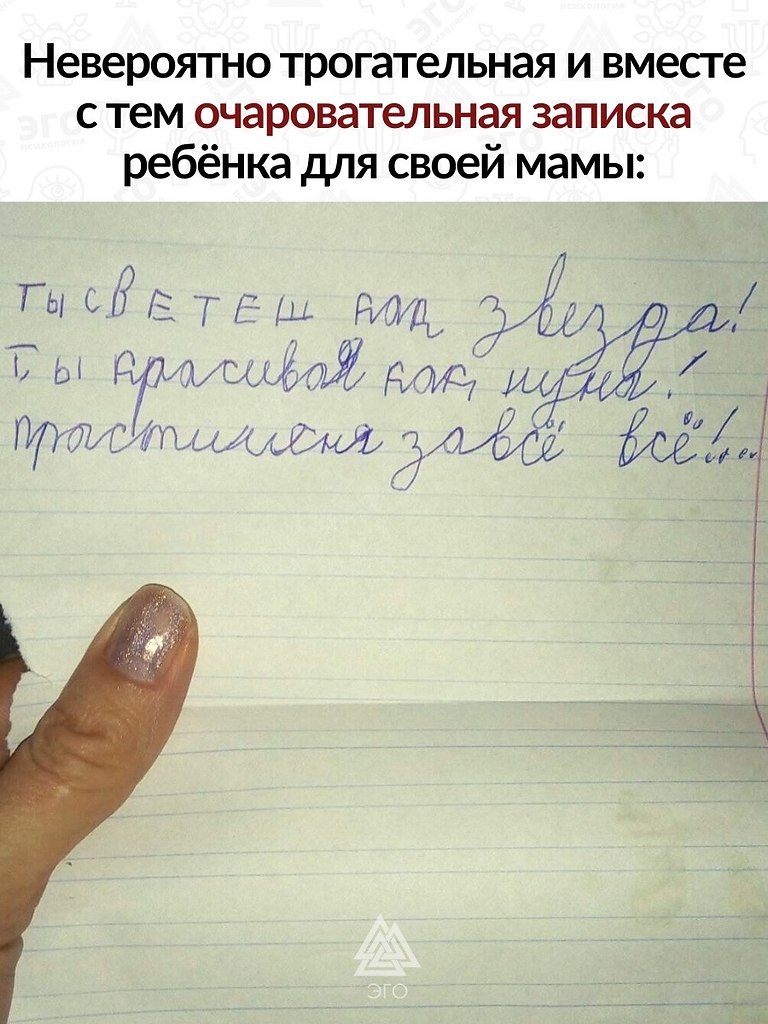 Невероятно трогательная и вместе
с тем очаровательная записка
ребёнка для своей мамы:
ты светеш как звезда!
Ты красивая как луна!
прастименя за всё всё!...
ЭГО